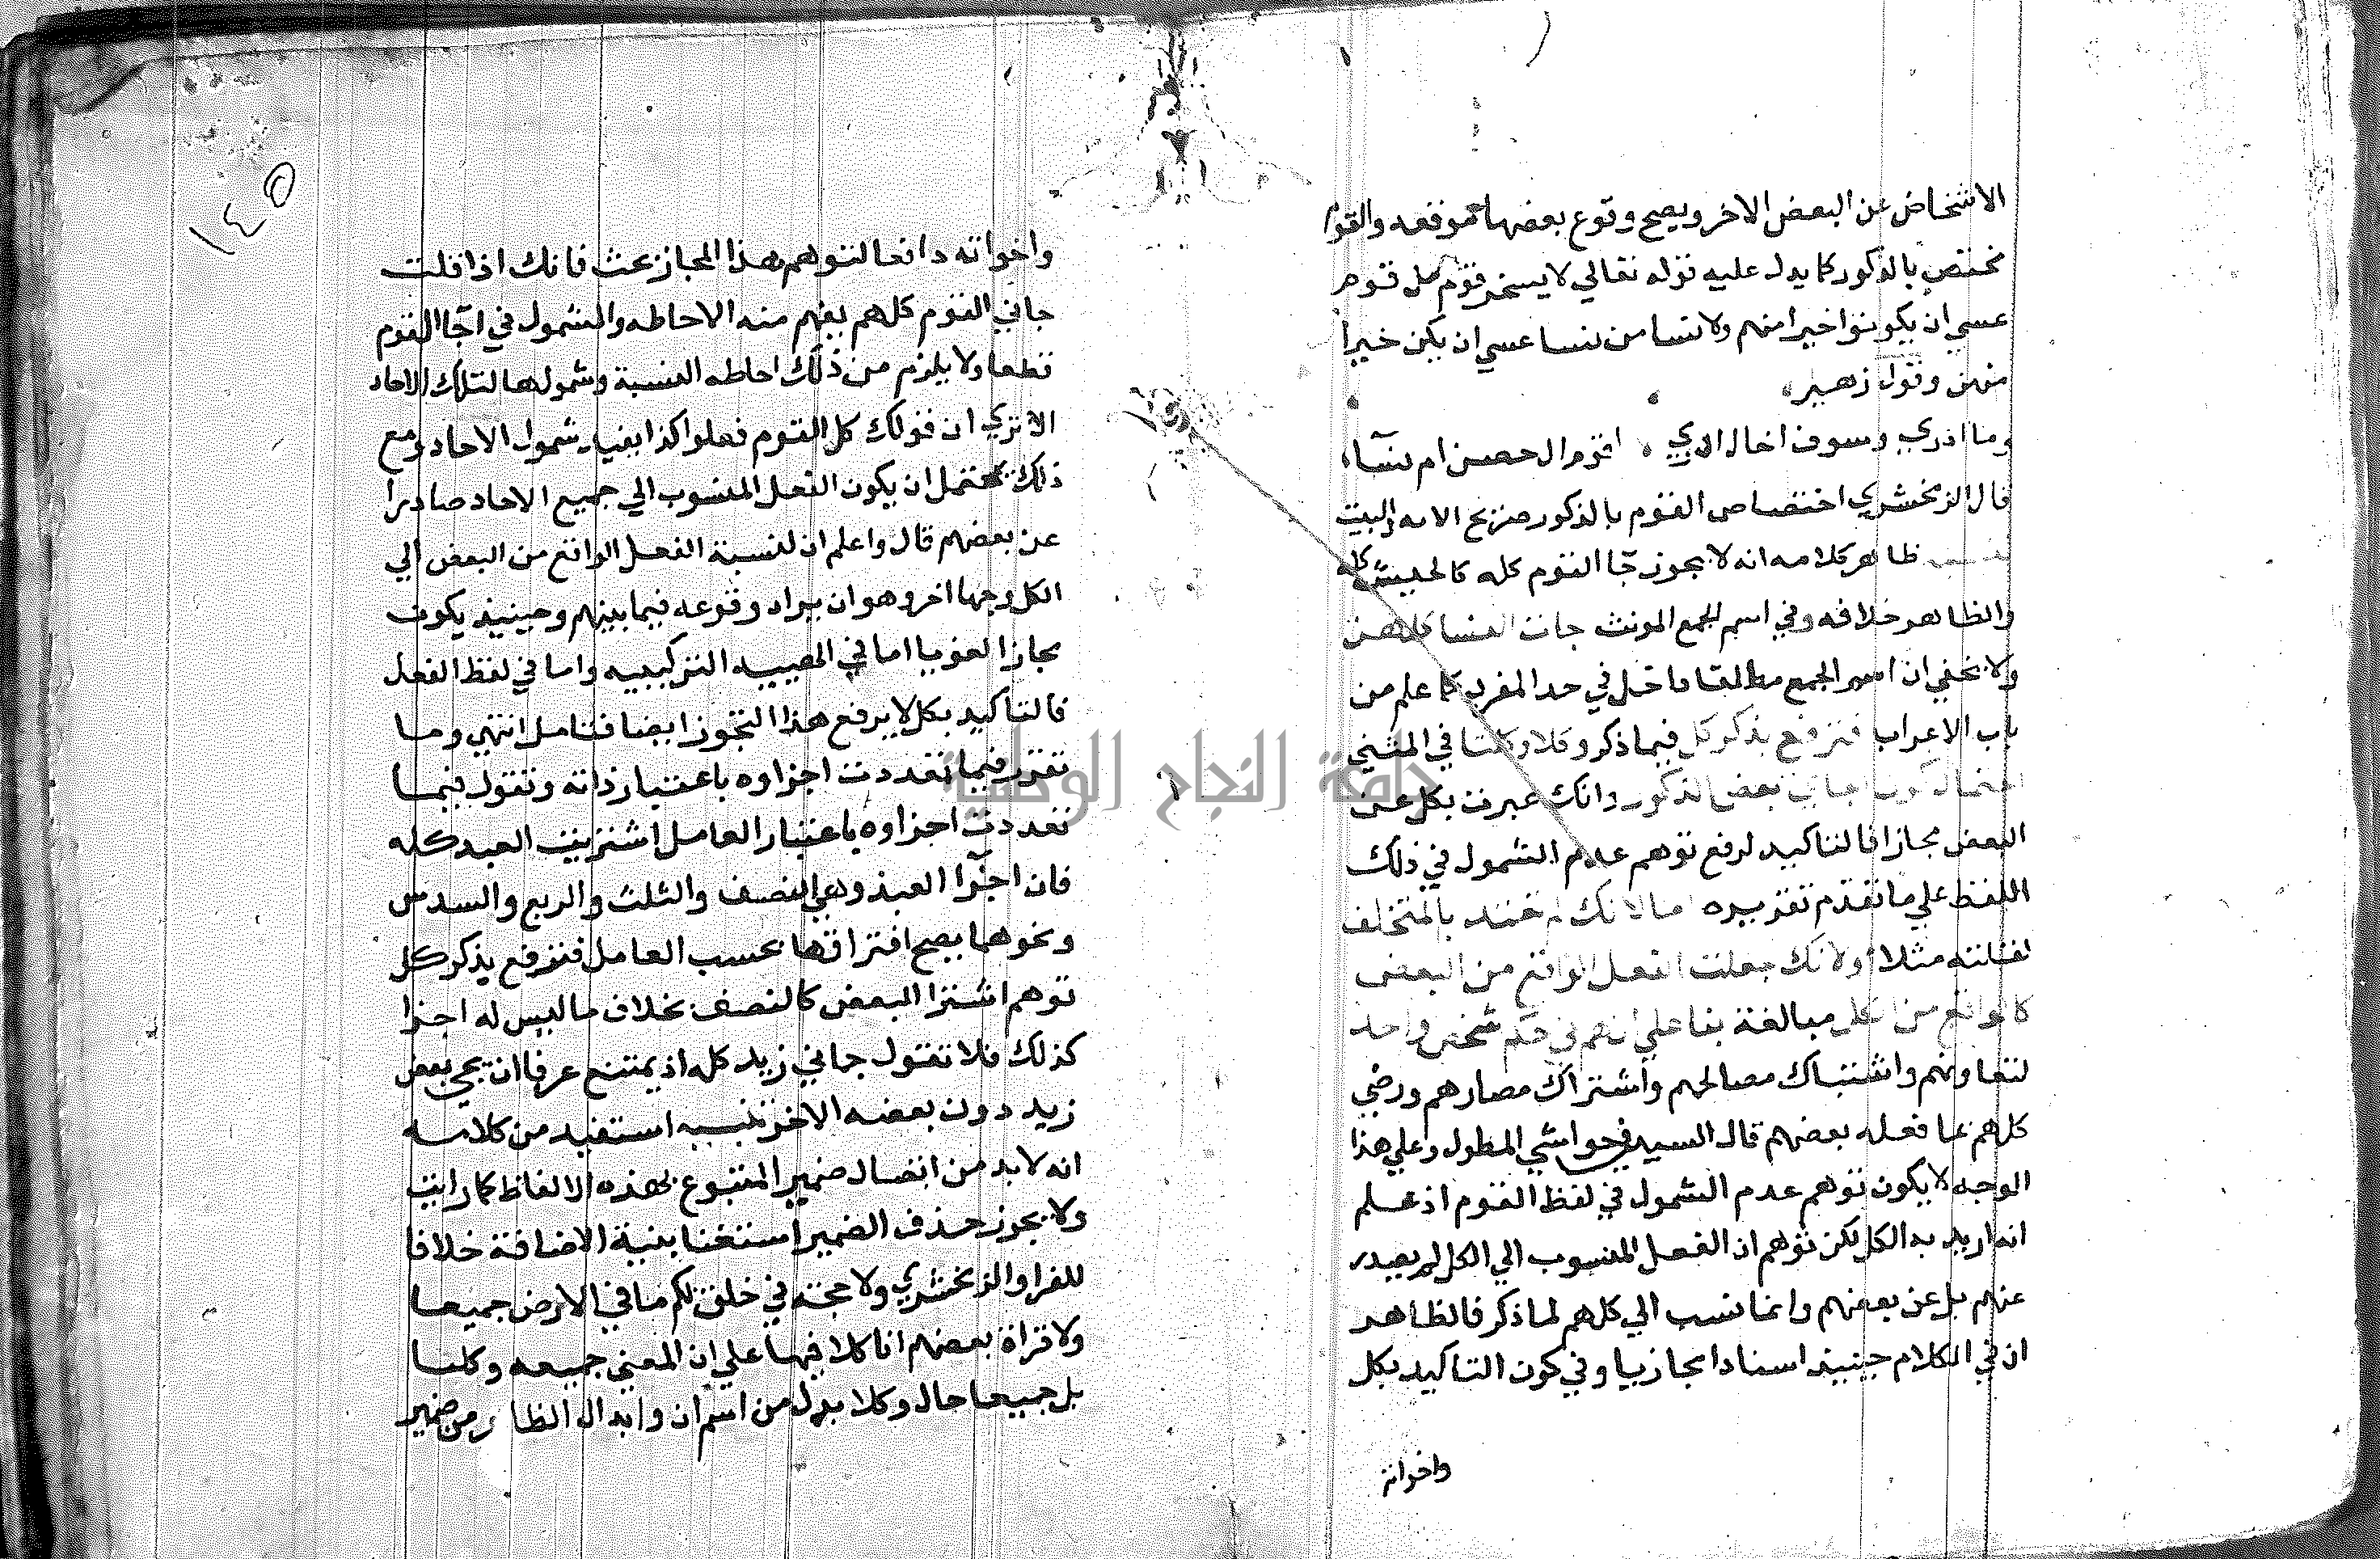 الاشخاص عن البعض الاخر ويصح وقوع بعضها موقعه والقوم
يختص بالذكور كما يدل عليه قوله تعالي لا يسخر قوم من قوم
عسي ان يكونوا خيرا منهم ولا نسا من نسا عسي ان يكن خيرا
منهن وقول زهير
وما ادري وسوف اخال ادري اقوم ال حصن ام نسآء
قال الزمخشري اختصاص القوم بالذكور صريح الايه والبيت
ظاهر كلامه انه لا يجوز جآ القوم كله كالجيش كله
والظاهر خلافه وفي اسم الجمع المونث جات النسا كلهن
ولا يخفي ان اسم الجمع مطلقا داخل في حد المفرد كما علم من
باب الاعراب فترفع بذكر كل فيما ذكر وكلا وكلتا في المثني
احتمال كون جاني بعض المذكور وانك عبرت بكل عن
البعض مجازا فالتاكيد لرفع توهم عدم الشمول في ذلك
اللفظ علي ما تقدم تقريره اما لانك لم تعتد بالمتخلف
لقلته مثلا او لانك جعلت الفعل الواقع من البعض
كالواقع من الكل مبالغة بنا علي انهم في حكم شخص واحد
لتعاونهم واشتباك مصالحهم واشتراك مصارهم ورضي
كلهم بما فعله بعضهم قال السيد في حواشي المطول وعلي هذا
الوجه لا يكون توهم عدم الشمول في لفظ القوم اذ علم
انه اريد به الكل لكن توهم ان الفعل المنسوب الي الكل لم يصدر
عنهم بل عن بعضهم وانما نسب الي كلهم لما ذكر فالظاهر
ان في الكلام حينيذ اسنادا مجازيا وفي كون التاكيد بكل
واخواته
١٤٥
واخواته دافعا لتوهم هذا المجاز بحث فانك اذا قلت
جاني القوم كلهم يفهم منه الاحاطه والشمول في اجآ القوم
قطعا ولا يلزم من ذلك احاطه النسبة وشمولها لتلك الاحاد
الا تري ان قولك كل القوم فعلوا كذا يفيد شمول الاحاد ومع
ذلك يحتمل ان يكون الفعل المنسوب الي جميع الاحاد صادرا
عن بعضهم قال واعلم ان لنسبة الفعل الواقع من البعض الي
الكل وجها اخر وهو ان يراد وقوعه فيما بينهم وحينيذ يكون
مجازا لغويا اما في الهييه التركيبيه واما في لفظ الفعل
فالتاكيد بكل لا يرفع هذا التجوز ايضا فتامل انتهي وما
تقرر فيما تعددت اجزاوه باعتبار ذاته وتقول فيما
تعددت اجزاوه باعتبار العامل اشتريت العبد كله
فان اجزآ العبد وهي النصف والثلث والربع والسدس
ونحوهما يصح افتراقها بحسب العامل فترفع بذكر كل
توهم اشترا البعض كالنصف بخلاف ما ليس له اجزا
كذلك فلا تقول جاني زيد كله اذ يمتنع عرفا ان يجي بعض
زيد دون بعضه الاخر تنبيه استفيد من كلامه
انه لا بد من اتصال ضمير المتبوع بهذه الالفاظ كما رايت
ولا يجوز حذف الضمير استغنا بنية الاضافة خلافا
للفرا والزمخشري ولا حجة في خلق لكم ما في الارض جميعا
ولا قراة بعضهم انا كلا فيها علي ان المعني جميعه وكلنا
بل جميعا حال وكلا بدل من اسم ان وابدال الظاهر من ضمير
جامعة النجاح الوطنية